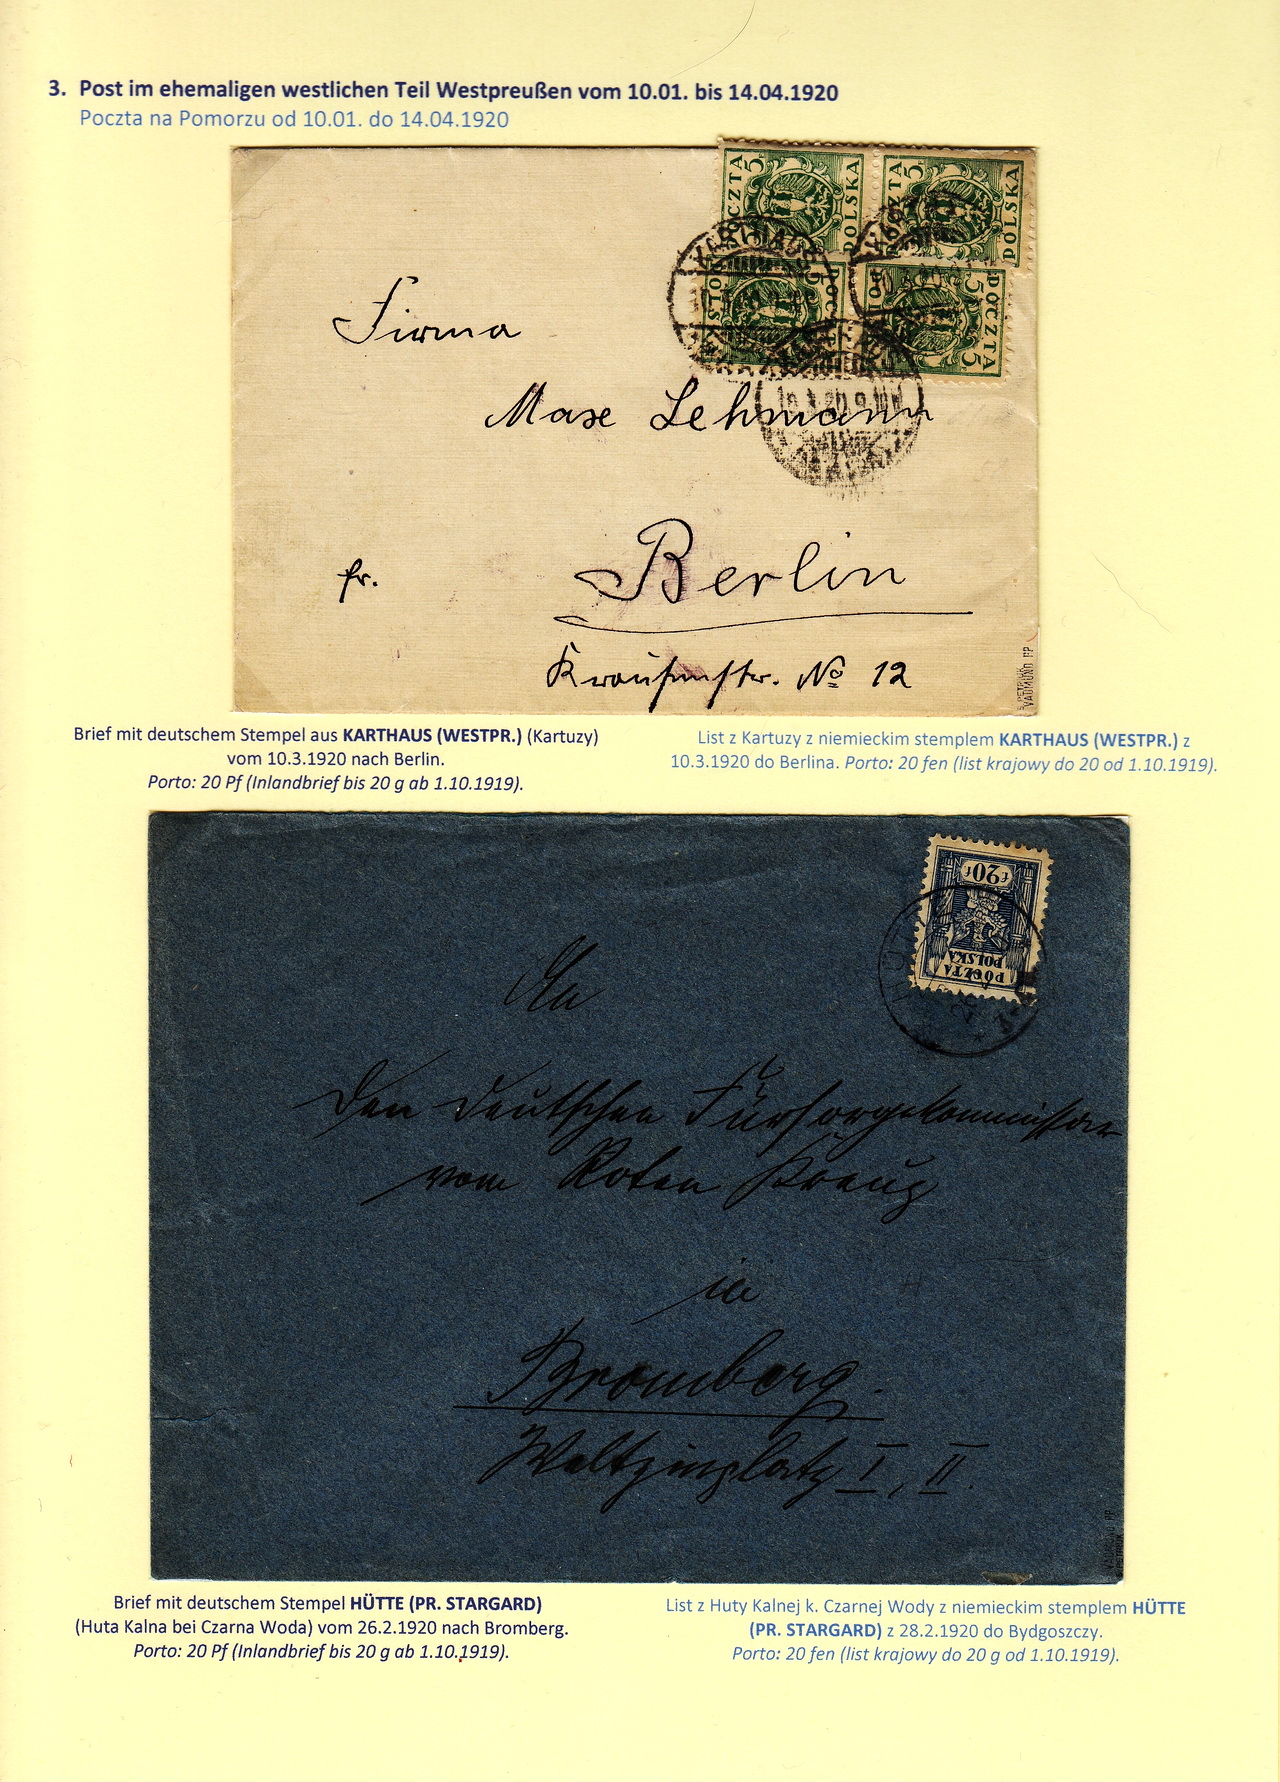 3. Post im ehemaligen westlichen Teil Westpreußen vom 10.01. bis 14.04.1920
Poczta na Pomorzu od 10.01. do 14.04.1920
POCZTA 5 POLSKA
5 POLSKA
POCZTA 5
KARTHAUS
Firma
Max Lehmann
fr.
Berlin
Krausenstr. No 12
Brief mit deutschem Stempel aus KARTHAUS (WESTPR.) (Kartuzy)
vom 10.3.1920 nach Berlin.
Porto: 20 Pf (Inlandbrief bis 20 g ab 1.10.1919).
List z Kartuzy z niemieckim stemplem KARTHAUS (WESTPR.) z
10.3.1920 do Berlina. Porto: 20 fen (list krajowy do 20 od 1.10.1919).
f 20 f
POCZTA
POLSKA
An
den deutschen Fürsorgekommissar
vom Roten Kreuz
in
Bromberg.
Weltzinplatz I, II.
Brief mit deutschem Stempel HÜTTE (PR. STARGARD)
(Huta Kalna bei Czarna Woda) vom 26.2.1920 nach Bromberg.
Porto: 20 Pf (Inlandbrief bis 20 g ab 1.10.1919).
List z Huty Kalnej k. Czarnej Wody z niemieckim stemplem HÜTTE
(PR. STARGARD) z 28.2.1920 do Bydgoszczy.
Porto: 20 fen (list krajowy do 20 g od 1.10.1919).